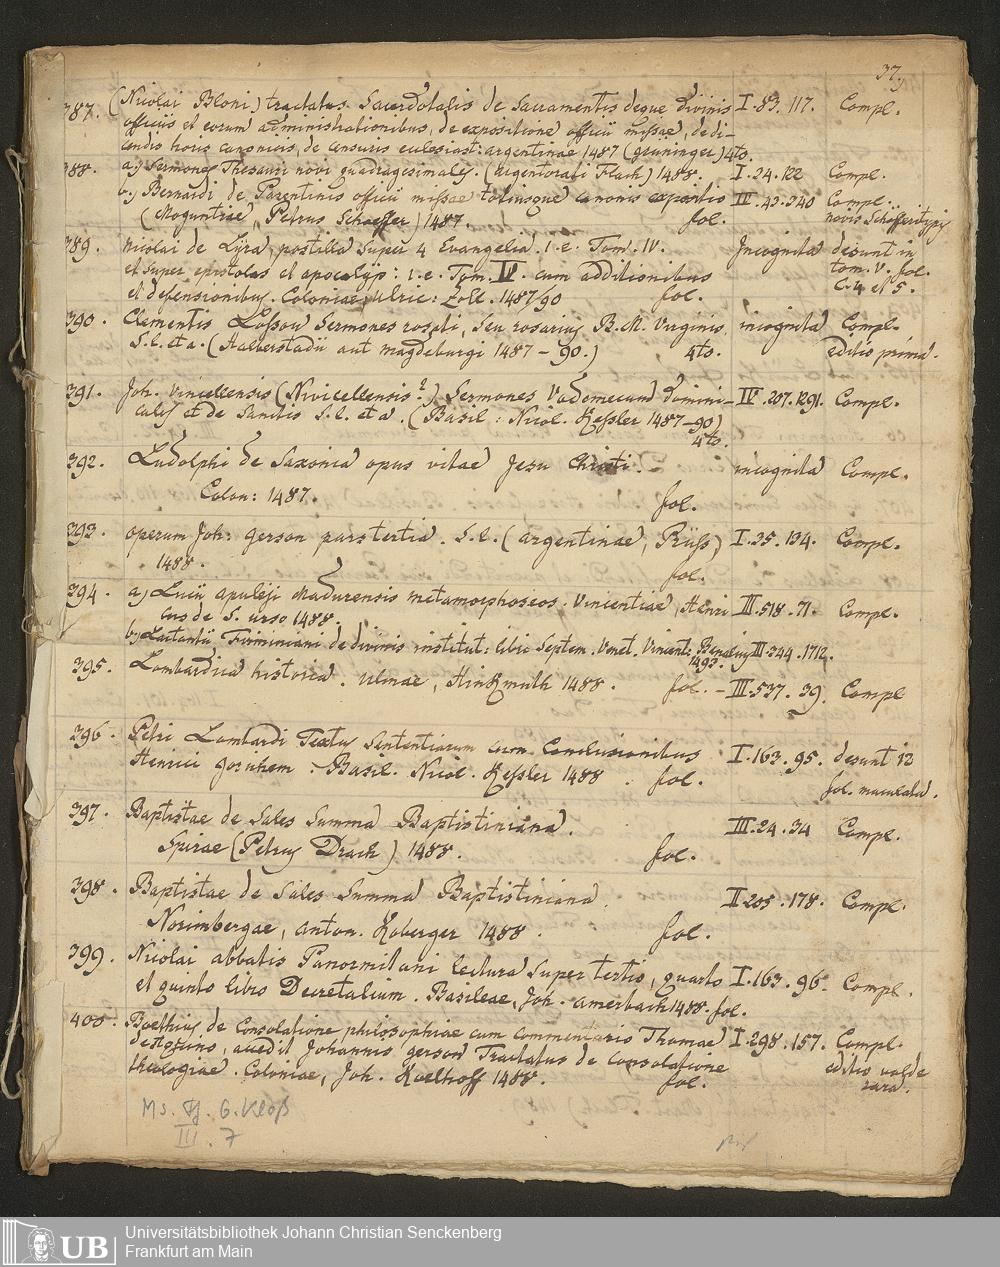 37.
387. (Nicolai Bloni) tractatus Sacerdotalis de Sacramentis deque divinis I. 83. 117. Compl.
officiis et eorum administrationibus, de expositione officii missae, de di-
cendis horis canonicis, de censuris ecclesiast: argentinae 1487 (gruninger) 4to.
388. a.) Sermones Thesauri novi quadragesimales. (Argentorati Flach) 1488. I. 24. 122 Compl.
b.) Bernardi de Parentinis officii missae totiusque canonis expositio IV. 43. 340 Compl.
(Moguntiae, Petrus Schoeffer) 1487. fol. novis Schöfferi typis
389. Nicolai de Lyra, postilla super 4 Evangelia. i. e. Tom. IV. Incognita desunt in
et super epistolas et apocalyps: i. e. Tom. V. cum additionibus tom. V. fol.
et defensionibus. Coloniae, Ulric: Zell. 1487/90 fol. C. 4 et 5.
390. Clementis Lossow Sermones rosati, seu rosarius B. M. Virginis incognita Compl.
S. l. et a. (Halberstadii aut magdeburgi 1487 - 90.) 4to. editio prima.
391. Joh. Vincellensis (Nivicellensis?) Sermones Vademecum domini- IV. 207. 1291. Compl.
cales et de Sanctis S. l. et a. (Basil: Nicol. Kessler 1487-90)
4to.
392. Ludolphi de Saxonia opus vitae Jesu Christi. incognita Compl.
Colon: 1487. fol.
393. operum Joh: Gerson pars tertia. S. l. (argentinae, Prüss) I. 35. 134. Compl.
1488. fol.
394. a.) Lucii apuleji Madurensis metamorphoseos. Vincentiae, Henri- III. 518. 71. Compl.
cus de S. urso 1488.
b.) Lactantii Firminiani de divinis institut: libri septem. Venet. Vincent: Benalius III. 344. 1712.
1493.
395. Lombardica historia. Ulmae, Hinkmuth 1488. fol. - III. 537. 39. Compl
396. Petri Lombardi Textus Sententiarum cum Conclusionibus I. 163. 95. desunt 12
Henrici Gornhem. Basil. Nicol. Kessler 1488. fol. fol. maculata.
397. Baptistae de Sales Summa Baptistiniana. III. 24. 34 Compl.
Spirae (Petrus Drach) 1488. fol.
398. Baptistae de Sales Summa Baptistiniana. II 205. 178. Compl.
Norimbergae, anton. Koberger 1488. fol.
399. Nicolai abbatis Panormitani lectura super tertio, quarto I. 163. 96. Compl.
et quinto libro Decretalium. Basileae, Joh. amerbach 1488. fol.
400. Boethius de Consolatione philosophiae cum commentario Thomae I. 298. 157. Compl.
de aquino, accedit Johannis gerson Tractatus de consolatione editio valde
theologiae. Coloniae, Joh. Koelhoff 1488. fol. rara.
Ms. Ff. G. Kloß
III. 7
UB Universitätsbibliothek Johann Christian Senckenberg
Frankfurt am Main